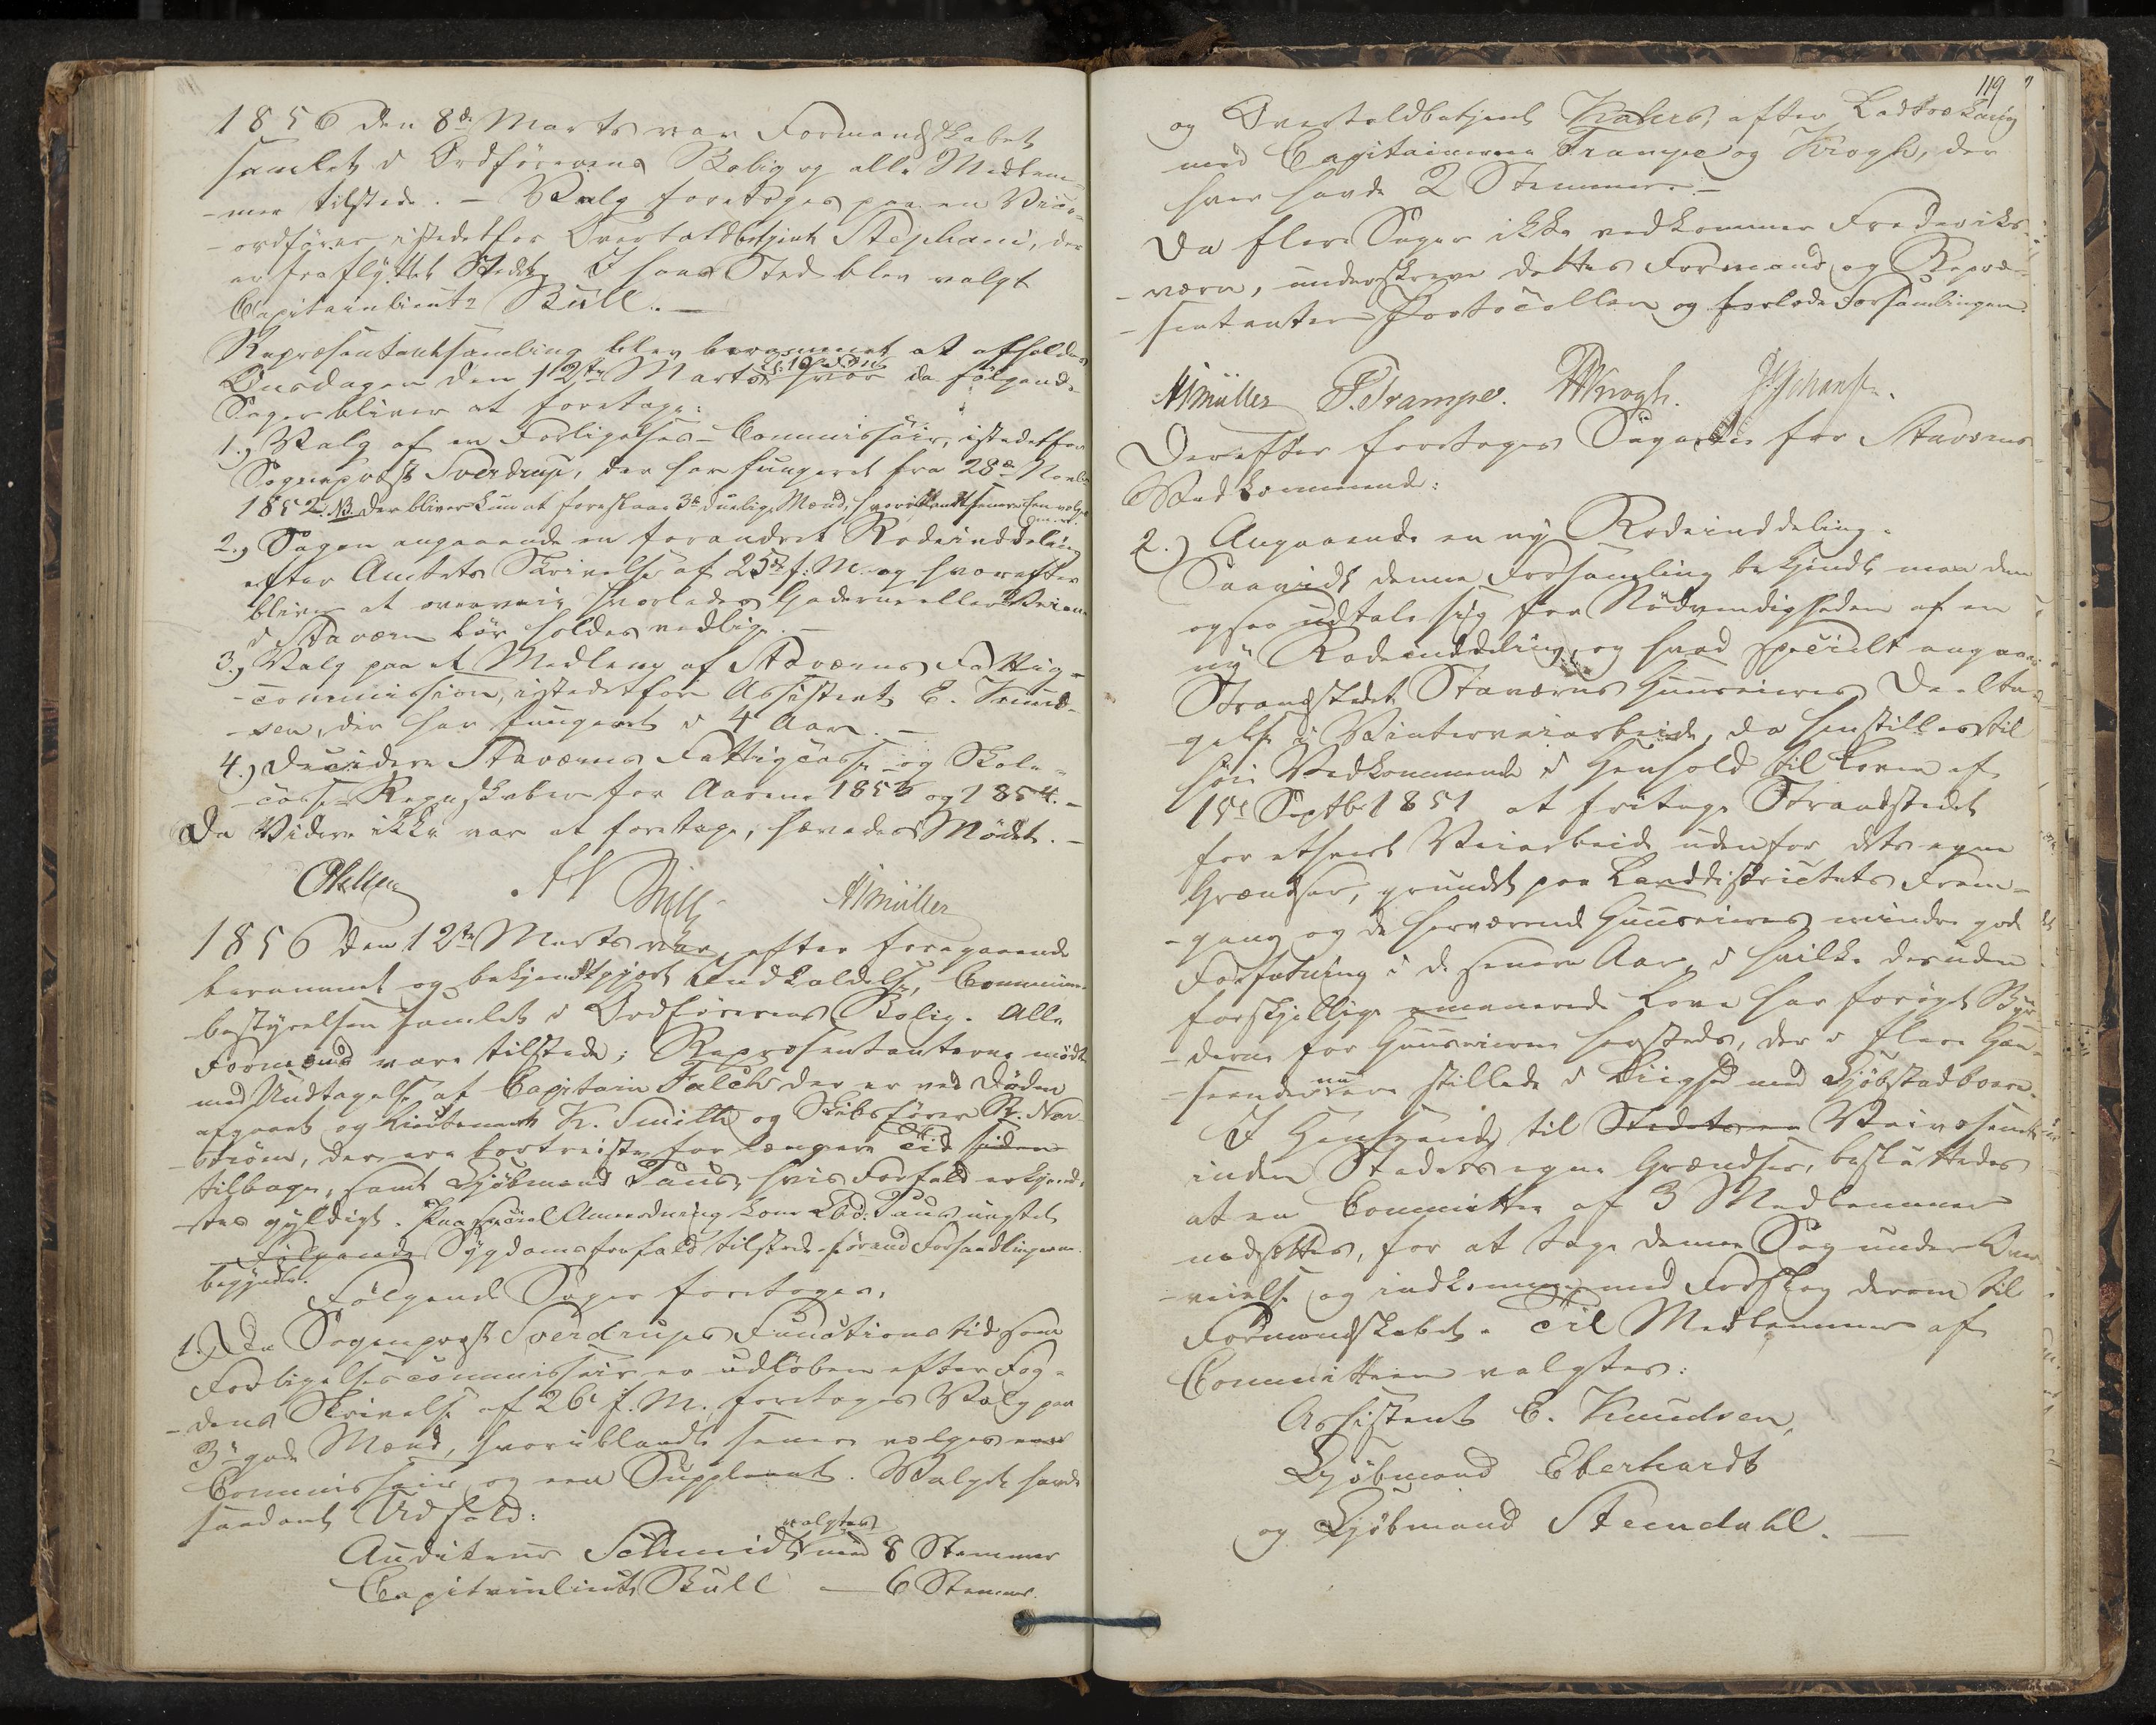 1856 den 8de Marts var Formandskabet
samlet i Ordförerens Bolig og alle Medlem-
-mer tilstede. – Valg foretoges paa en Vice-
-ordförer istedetfor Overtoldbetjent Stephani, der
er fraflyttet Stedet. I hans Sted blev valgt
Capitainlieutn Bull. –
Repræsentantsamling blev berammet at afholdes
Onsdagen den 12te Marts Kl. 10 da fölgende
Sager bliver at foretage:
1.) Valg af en Forligelses-Commissair, istedetfor
Sogneprost Sverdrup, der har fungeret fra 28de Novbr
1852. NB. Der bliver kun at foreslaae 3de duelige Mænd, hvoriblandt senere
2.) Sagen angaaende en forandret Rodeinddeling
efter Amtets Skrivelse af 25de f: M. og hvorefter
bliver at overveie hvorledes Gaderne eller Veiene
i Staværn bör holdes vedlige. –
3.) Valg paa et Medlem af Staværns Fattig-
-commission, istedetfor Assistent E. Knud-
-sen, der har fungeret i 4 Aar. –
4.) Decidere Staværns Fattigcasse- og Skole-
-casse-Regnskaber for Aarene 1853 og 1854. –
Da Videre ikke var at foretage, hævedes Mödet. –
Bull AMüller
1856 den 12te Marts var, efter foregaaende
berammet og bekjendtgjort Indkaldelse, Commune-
bestyrelsen samlet i Ordförerens Bolig. Alle
Formænd vare tilstede; Repræsentanterne mödte
med Undtagelse af Capitain Falch der er ved Döden
afgaaet og Lieutenant K. Smith og Skibsförer B. Nor-
-ström, der ere bortreiste for længere Tid siden
tilbage, samt Kjöbmand Taus, hvis Forfald erkjend-
-tes gyldigt. Paa Anmodning kom Kbd: Taus uagtet
Fölgende Sygdomsforfald tilstede forend Forhandlingerne
begyndte.
Fölgende Sager foretoges,
1.) Da Sogneprost Sverdrups Functionstid som
Forligelsescommissair er udlöben efter Fog-
-dens Skrivelse af 26de f. M. foretoges Valg paa
3de gode Mænd, hvoriblandt senere vælges een
Commissair og een Suppleant. Valget havde
saadant Udfald:
Auditeur Schmidt valgtes med 8 Stemmer
Capitainlieutn Bull — 6 Stemmer.
119
og Overtoldbetjent Kahrs, efter Lodtrækning
med Capitainerne Trampe og Krogh, der
hver havde 2 Stemmer. –
Da flere Sager ikke vedkommer Frederiks-
-værn, underskreve dettes Formænd og Repræ-
-sentanter Protocollen og forlode Forsamlingen.
AMüller P. Trampe. Krogh. Johansen.
Derefter foretoges Sagerne for Staværns
Vedkommende:
2.) Angaaende en ny Rodeinddeling.
Saavidt denne Forsamling bekjendt maa den
ogsaa udtale sig for Nödvendigheden af en
ny Rodeinddeling, og hvad specielt angaaer
Strandstedet Staværns Huuseieres Deelta-
gelse i Vinterveiarbeide, da henstilles til
höie Vedkommende i Henhold til Loven af
15de Septbr 1851 at fritage Strandstedet
for ethvert Veiarbeide udenfor dets egne
Grændser, grundet paa Landdistrictets Frem-
-gang og de herværende Huuseieres mindre gode
Forfatning i de senere Aar, i hvilke desuden
forskjellige emanerede Love har forøget Byr-
-derne for Huuseierne hersteds, der i flere Hen-
-seender nu ere stillede i Liighed med Kjöbstadboere.
I Henseende til Stedets en Veivæsenet
inden Stedets egne Grændser, besluttedes
at en Committee af 3 Medlemmer
nedsættes, for at tage denne Sag under Over-
-veielse og indkomme med Forslag derom til
Formandskabet. Til Medlemmer af
Committeen valgtes:
Assistent E. Knudsen,
Kjöbmand Eberhardt
og Kjöbmand Steendahl. —